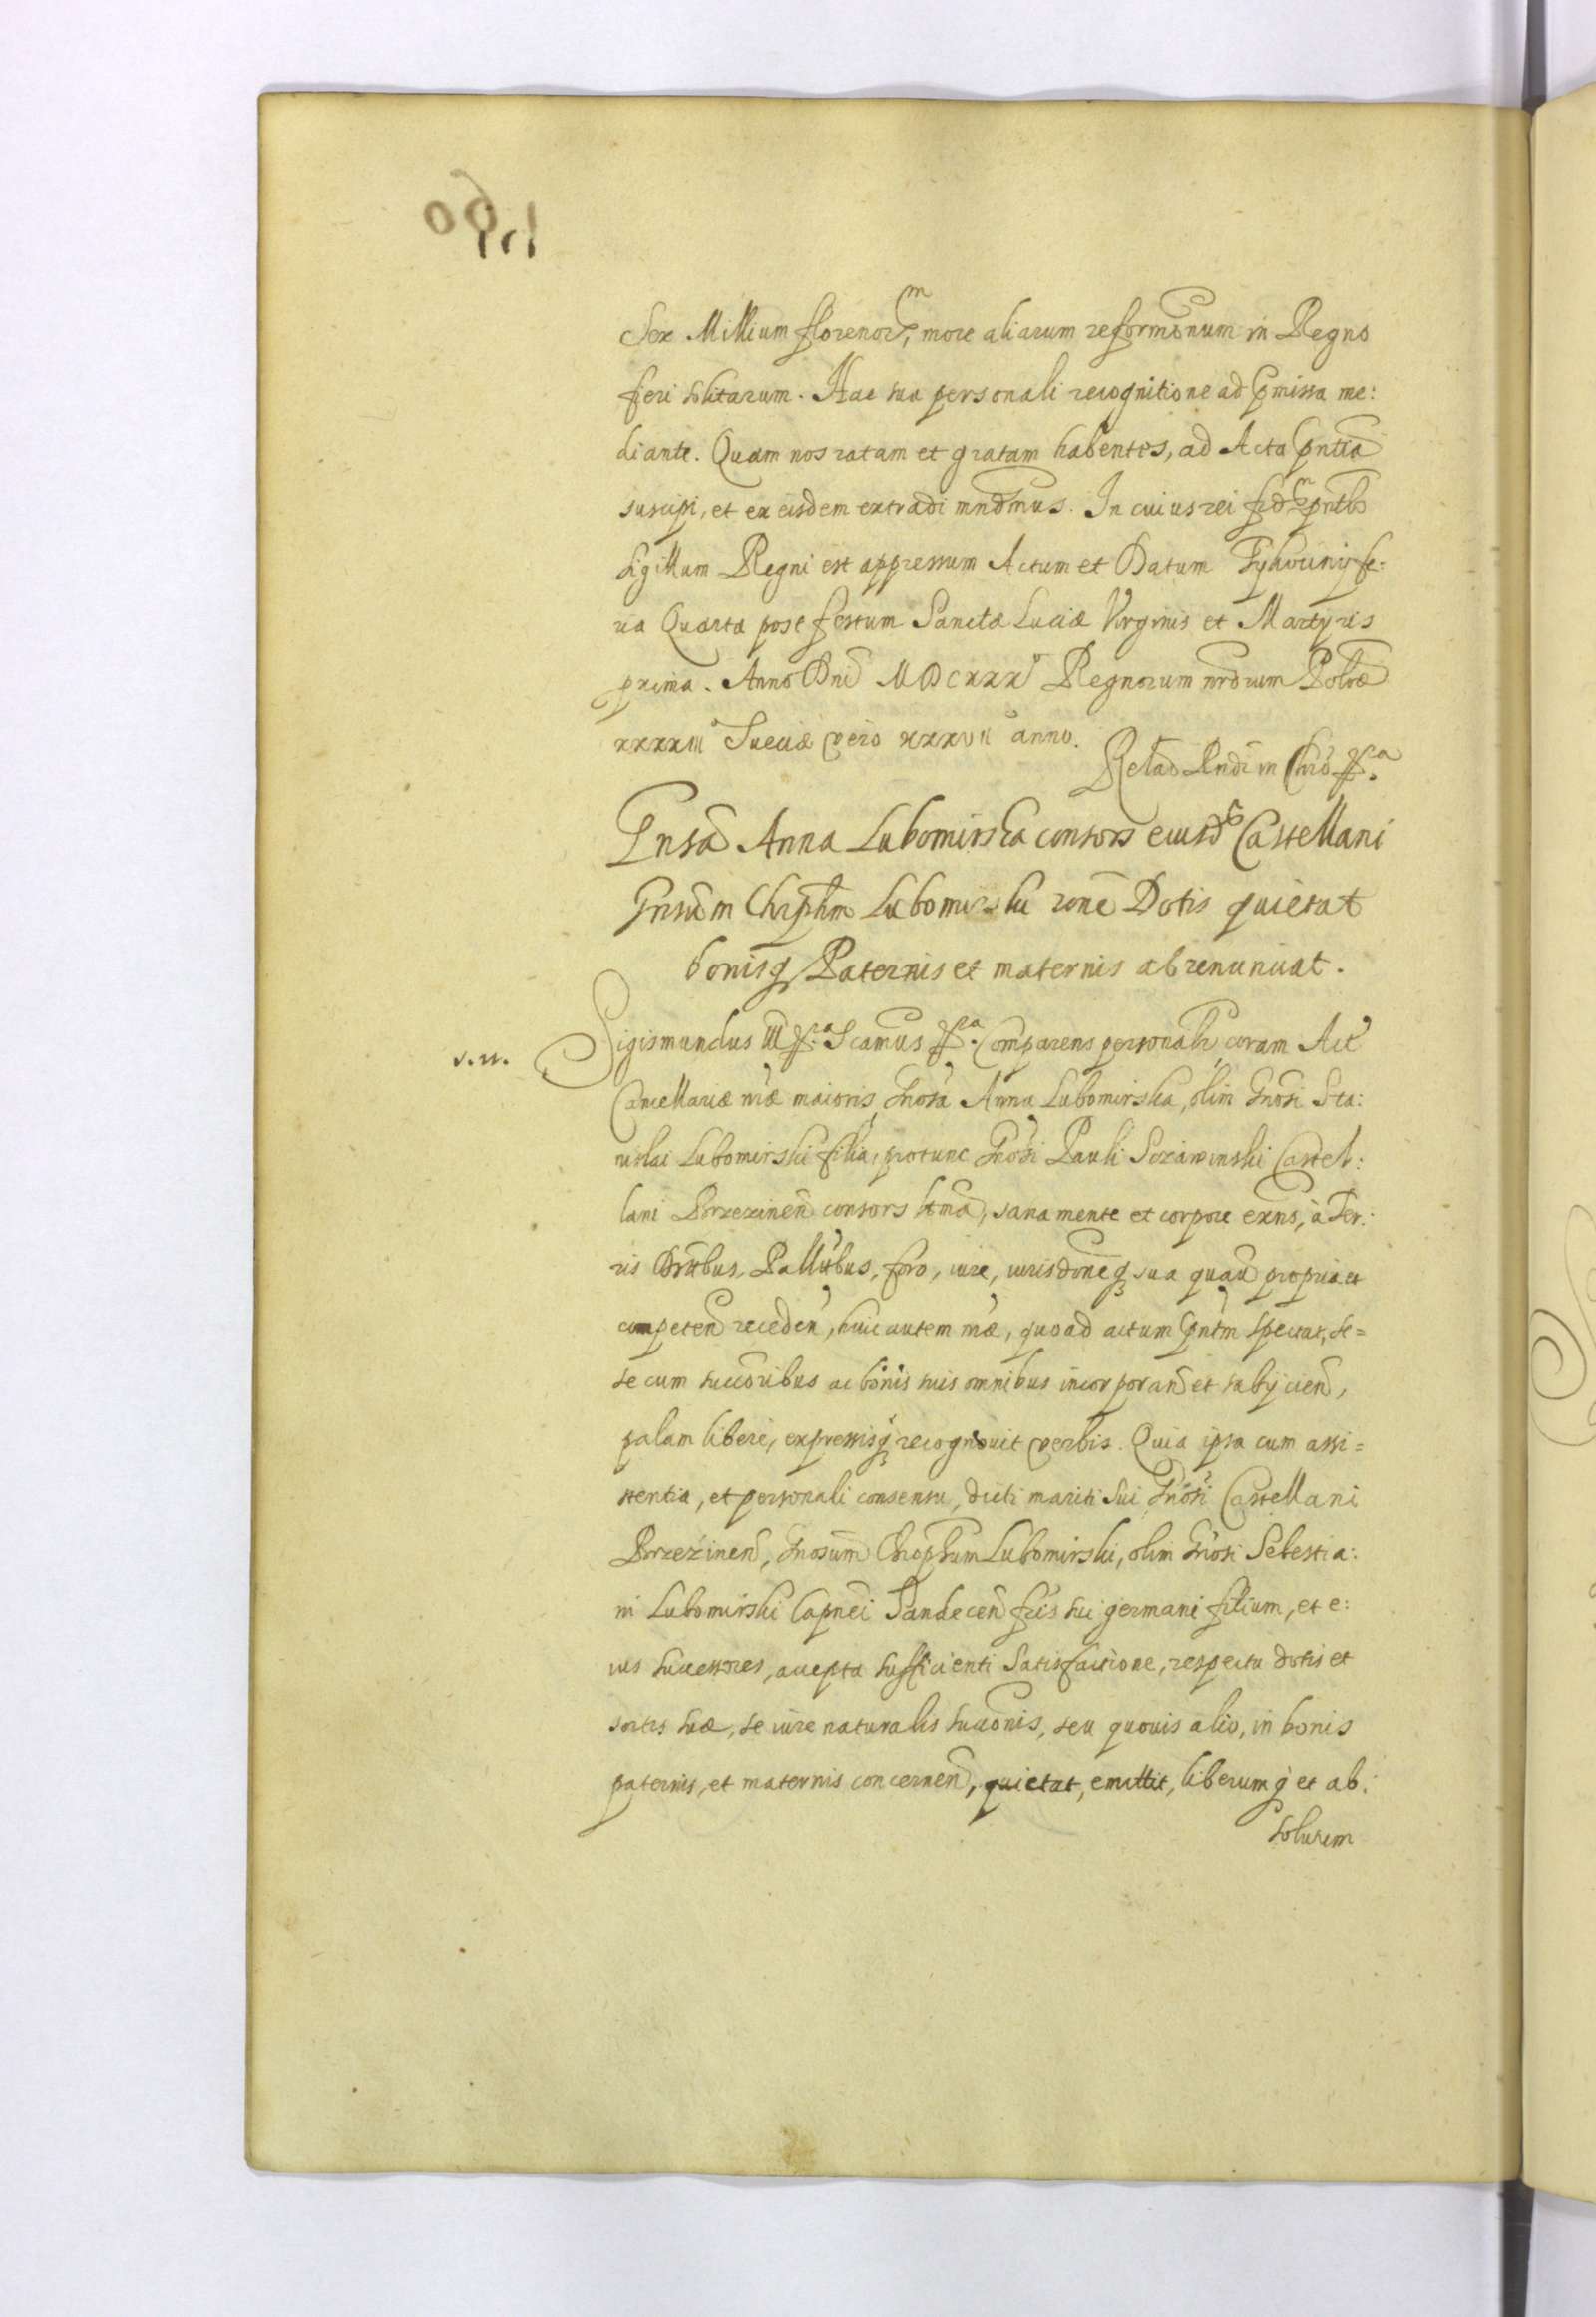 Sex Millium florenorum, more aliarum reformõnum in Regno
fieri solitarum. Hac sua personali recognitione ad pmissa me:
diante. Quam nos ratam et gratam habentes, ad Acta pntia
suscipi, et ex eisdem extradi mndmus. In cuius rei fidem pntbs
sigillum Regni est appressum Actum et Datum Tykocinij fe:
ria Quarta post festum Sanctæ Luciæ Virginis et Martyris
prima. Anno Dni MDCXXX Regnorum nrorum Polõæ
xxxxiii Sueciæ vero xxxvii anno.
Relao Rndi in Chro
Gnsa Anna Lubomirska consors eiusd Castellani
Gnsum Chrphm Lubomirski rone Dotis quietat
bonisq Paternis et maternis abrenunciat.
s.n. Sigismundus III Scamus Comparens personalr coram Act
Cancellariæ nræ maioris Gnosa Anna Lubomirska, olim Gnosi Sta:
nislai Lubomirski filia, pro tunc Gnosi Pauli Szczawinski Castel:
lani Brzezinen consors ltma, sana mente et corpore exns, à Ter:
ris Dristbus, Pallatbus, foro, iure, iurisdoneq sua quavi propria et
competen receden, huic autem nræ, quoad actum pntm spectat, se=
se cum succoribus ac bonis suis omnibus incorporan et subijcien,
palam libere, expressisq recognovit verbis. Quia ipsa cum assi=
stentia, et personali consensu, dicti mariti sui Gnosi Castellani
Brzezinen, Gnosum Chrophum Lubomirski, olim Gnosi Sebestia:
ni Lubomirski Capnei Sandecen fris sui germani filium, et e:
ius successores, accepta sufficienti satisfactione, respectu dotis et
sortis suæ, se iure naturalis succonis, seu quovis alio, in bonis
paternis, et maternis concernen, quietat, emittit, liberumq et ab:
solutum